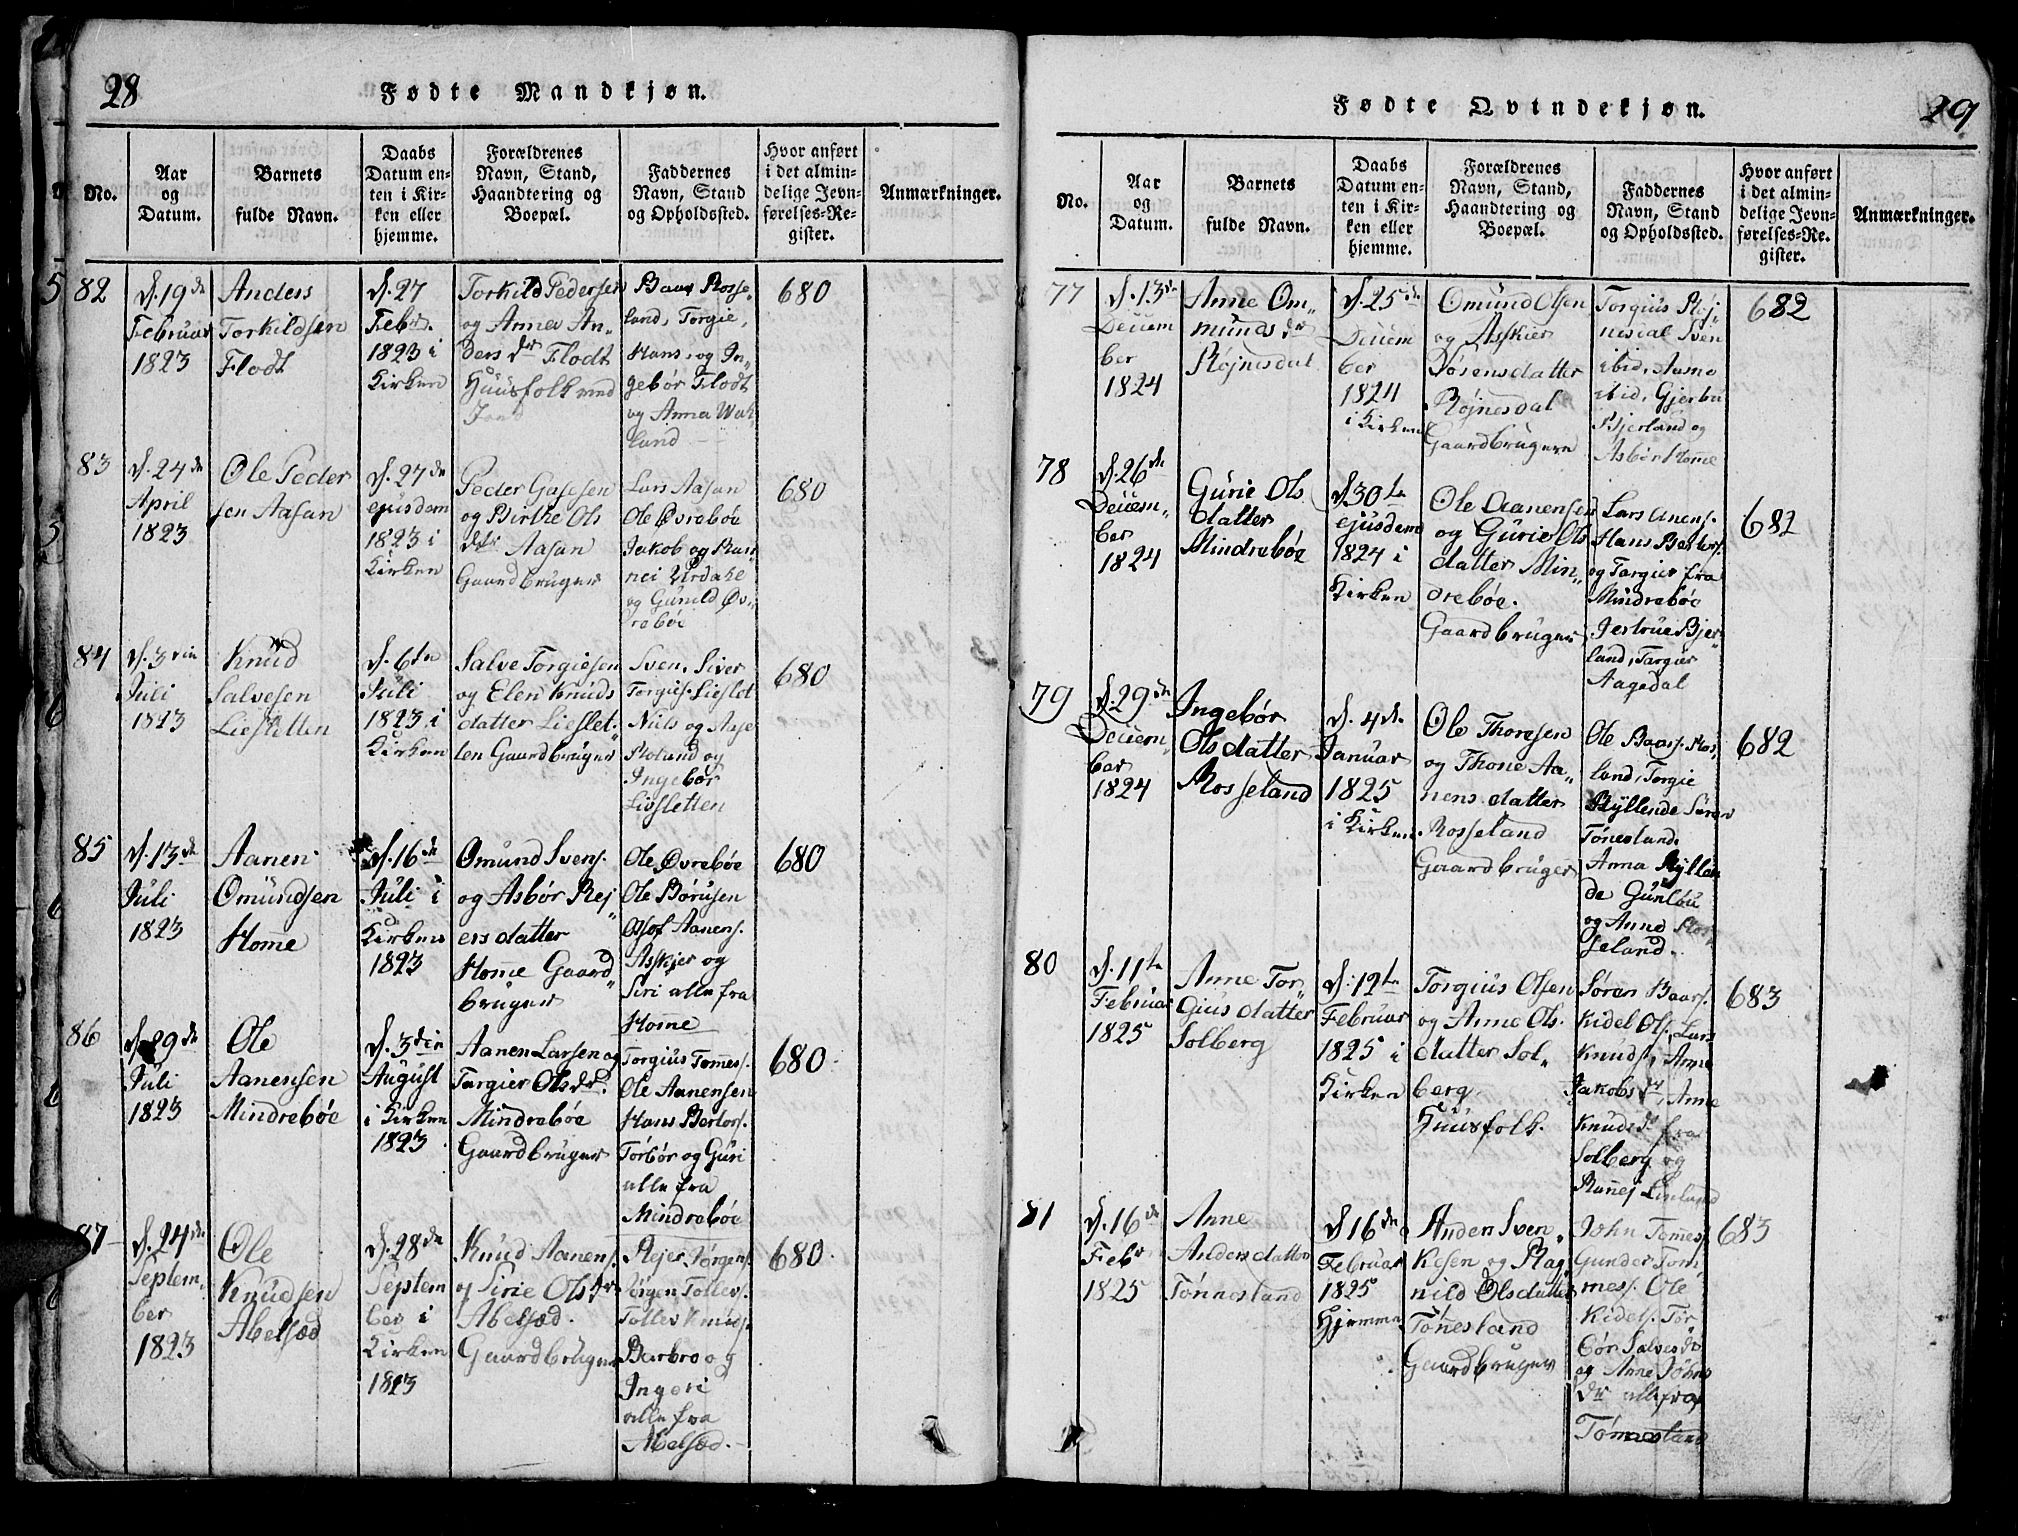 28
Fødte Mandkjøn.
No.
Aar
og
Datum.
Barnets
fulde Navn.
Daabs
Datum en-
ten i Kir-
ken eller
hjemme.
Forældrenes
Navn, Stand,
Haandtering og
Boepæl.
Faddernes
Navn, Stand
og Opholdssted.
Hvor anført
i det almin-
delige Jevn-
førelses-Re-
gister.
Anmærkninger.
82
d. 19de
Februar
1823
Anders
Torkildsen
Flodt
d. 27
Febr.
1823 i
Kirken
Torkild Pedersen
og Anna An„
ders dr Flodt
Huusfolk med
Jord
Baar Rosse„
land, Torgie,
Hans, og In„
gebør Flodt
og Anna
land
680
83
d. 24de
April
1823
Ole Peder
sen Aasan
d. 27de
ejusdem
1823 i
Kirken
Peder
og Birthe Ols
dtr Aasan
Gaardbruger
Lars Aasan
Ole Øvrebøe
Jakob og Ran
nei
og Gunild Øv„
rebøe
680
84
d. 3die
Juli
1823
Knud
Salvesen
Liesletten
d. 6te
Juli
1823 i
Kirken
Salve Torgiesen
og Elen Knuds
datter Lieslet„
ten Gaardbruger
Sven, Siver
Torgies. Lieslet
Nils og Aase
og
Ingebør
Liesletten
680
85
d. 13de
Juli
1823
Aanen
Omundsen
Home
d. 16de
Juli i
Kirken
1823
Omund Svens.
og Asbør Rej
ersdatter
Home Gaard„
bruger
Ole Øvrebøe
Ole Børusen
Olof Aanens.
Asskjer og
Siri alle fra
Home
680
86
d. 29de
Juli
1823
Ole
Aanensen
Mindrebøe
d. 3die
August
i Kirken
1823
Aanen Larsen og
Targier Olsdr.
Mindrebøe
Gaardbruger
Torgius Tomes.
Ole Aanensen
Hans Bertors.
Torbør og Guri
alle fra
Mindrebøe
680
87
d. 24de
Septem„
ber
1823
Ole
Knudsen
Abelsæd
d. 28de
Septem
ber i
Kirken
1823
Knud Aanens.
og Sirie Olsdr
Abelsæd.
Gaardbruger
Rejer Jørgens.
Jørgen Tollevs.
Tollev Knuds.
Barbro og
Ingeri
alle fra
Abelsæd.
680
29
Fødte Qvindekjøn.
No.
Aar
og
Datum.
Barnets
fulde Navn.
Daabs
Datum en-
ten i Kir-
ken eller
hjemme.
Forældrenes
Navn, Stand,
Haandtering og
Boepæl.
Faddernes
Navn, Stand
og Opholdssted.
Hvor anført
i det almin-
delige Jevn-
førelses-Re-
gister.
Anmærkninger.
77
d. 13de
Decem
ber
1824
Anne Om„
munds dr
Røjnesdal
d. 25de
Decem
ber
1824
i Kirken
Omund Olsen
og Asskier
Sørensdatter
Røjnesdal
Gaardbruger
Torgius Røj„
nesdal Sven
ibid, Aamo
ibid, Gjerbu
Bjerland og
Asbør Home
682
78
d. 26de
Decem„
ber
1824
Gurie Ols
datter
Mindrebøe
d 30te
ejusdem
1824 i
Kirken
Ole Aanensen
og Gurie Ols
datter Min„
drebøe.
Gaardbruger
Lars Anens.
Hans Bertors.
og Targier fra
Mindrebøe
Jestrue Bjer
land, Targier
Aagedal
682
79
d. 29de
Decem„
ber
1824
Ingebør
Olsdatter
Rosseland
d. 4de
Januar
1825
i Kirken
Ole Thoresen
og Thone Aa„
nens datter
Rosseland
Gaardbruger
Ole Baars. Ros„
land, Torgie
Kyllende Søren
Tønesland,
Anna Kyllen
de Gunlou
og Anne Ros„
seland.
682
80
d. 11te
Februar
1825
Anne Tor„
gius datter
Solberg
d. 12te
Februar
1825 i
Kirken
Torgius Olsen
og Anne Ols.
datter Sol„
berg
Huusfolk.
Søren Baars.
Kidel Ols., Lars
Knuds., Anne
Jakobsdr, Anne
Knudsdr fra
Solberg og
Rannej Linland
683
81
d. 16de
Febr
1825
Anne
Andersdatter
Tønnesland
d 16de
Februar
1825
Hjemme
Anden Sven„
kesen og Rag„
nild Olsdatter
Tønesland
Gaardbruger
John Tomes.
Gunder Tom
mes. Ole
Kidels. Tor
bør Salvesdr
og Anne Johns
dr alle fra
Tønnesland
683